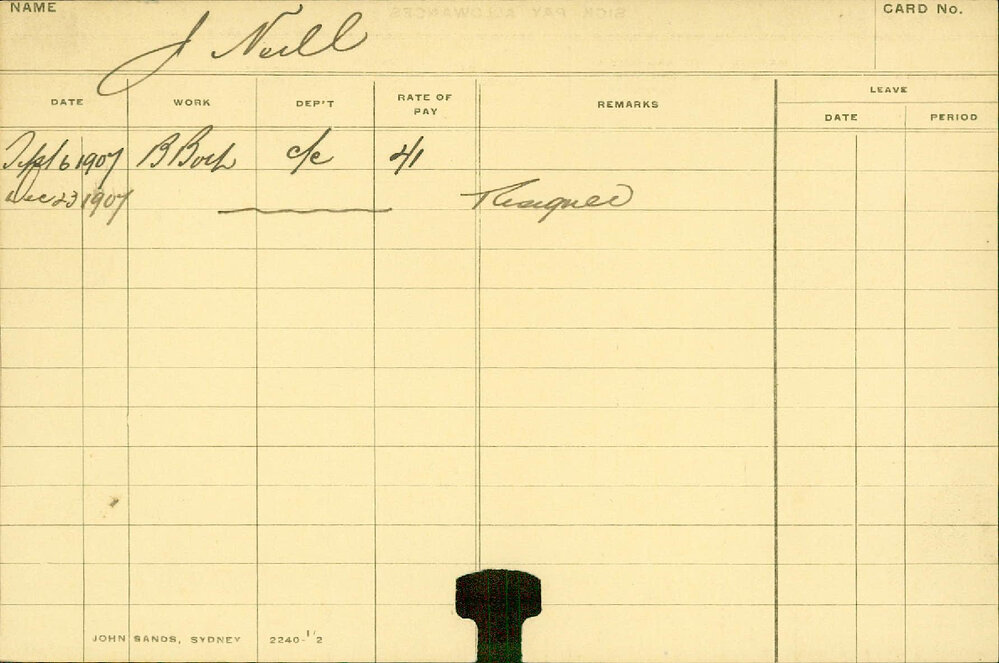 NAME
J Neill
CARD No.
DATE WORK DEP'T RATE OF PAY REMARKS LEAVE
DATE PERIOD
Sept 6 1907 B Boy c/c 4/
Dec 23 1907 Resigned
JOHN SANDS, SYDNEY 2240-1/2
SICK PAY ALLOWANCES